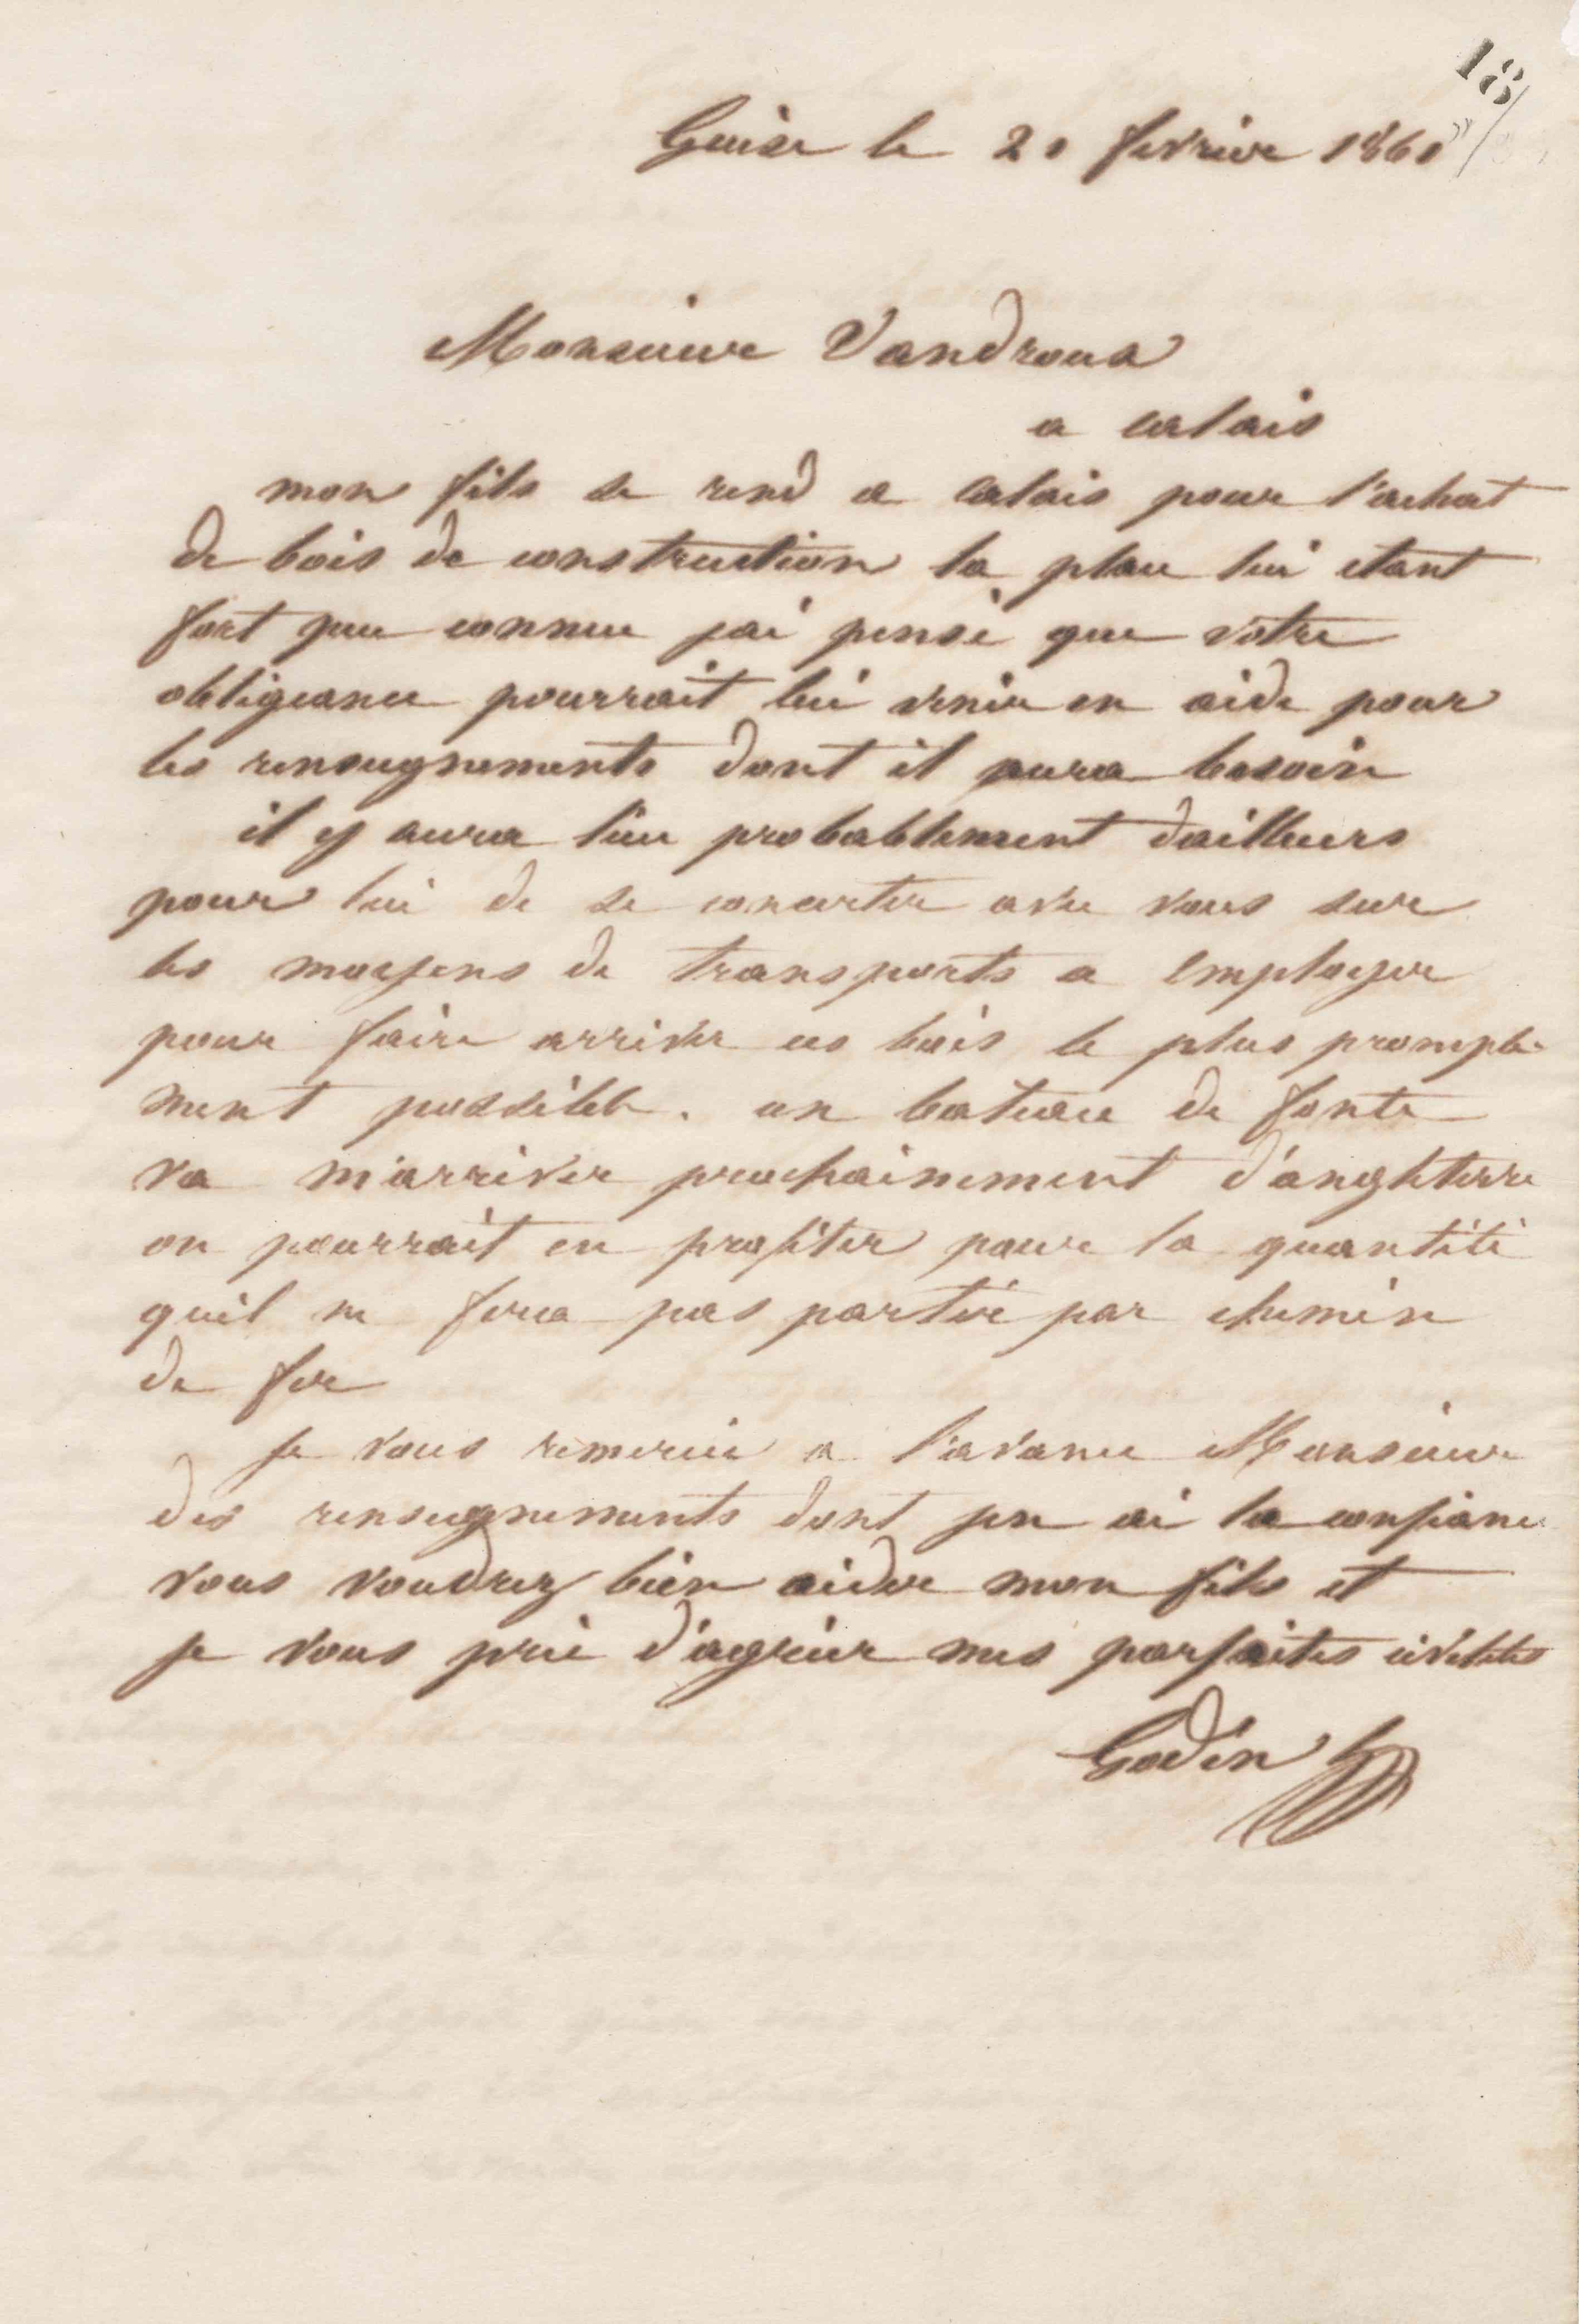 18
Guise le 21 fevrier 1861
Monsieur Vandroux
a calais
mon fils se rend a calais pour l'achat
de bois de construction la place lui etant
fort peu connue jai pensé que votre
obligeance pourrait lui venir en aide pour
les renseignements dont il aura besoin
il y aura lieu probablement dailleurs
pour lui de se concerter avec vous sur
les moyens de transports a employer
pour faire arriver ces bois le plus prompte
ment possible. un bateau de fonte
va m'arriver prochainement d'angleterre
on pourrait en profiter pour la quantité
quil ne fera pas partir par chemin
de fer
je vous remercie a l'avance Monsieur
des renseignements dont jen ai la confiance
vous voudrez bien aider mon fils et
je vous prie d'agréer mes parfaites civilités
Godin